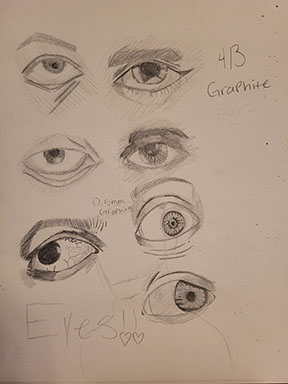 4B
Graphite
Eyes
0.5mm
Graphite
Eyes!!♡♡